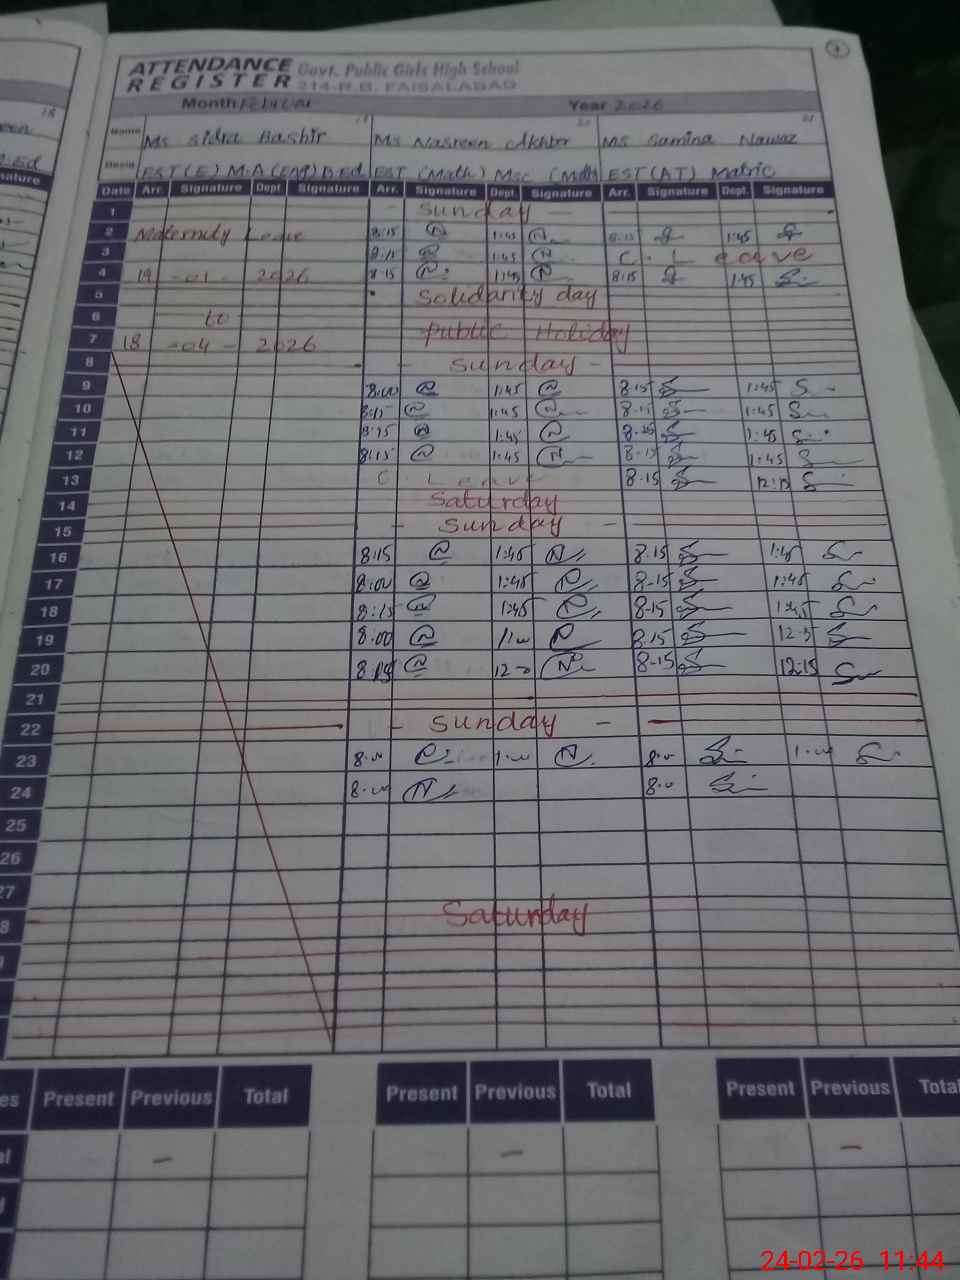 ATTENDANCE REGISTER Govt. Public Girls High School
214-R.B. FAISALABAD
Month February Year 2026
19 20 21
Name Ms Sidra Bashir Ms Nasreen Akhter Ms Samina Nawaz
EST(E) M.A(Eng) B.Ed EST (Math) Msc (Math EST(AT) Matric
Date Arr. Signature Dept. Signature Arr. Signature Dept. Signature Arr. Signature Dept. Signature
1 Sunday
2 Maternity Leave 8:15 1:45 8:15 1:45
3 8:15 1:45 C. Leave
4 19 -01- 2026 8:15 1:45 8:15 1:45
5 Solidarity day
6 to
7 18 -04- 2026 Public Holiday
8 Sunday
9 8:00 1:45 8:15 1:45
10 8:15 1:45 8:15 1:45
11 8:15 1:45 8:15 1:45
12 8:15 1:45 8:15 1:45
13 C Leave 8:15
14 Saturday
15 Sunday
16 8:15 1:45 8.15 1:45
17 8:00 1:45 8-15 1:45
18 8:15 1:45 8-15 1:45
19 8:00 8.15
20 8:15 8-15 12:15
21
22 Sunday
23 8.00 1.00 8.0 1.00
24 8.00 8.0
25
26
27
8 Saturday
es Present Previous Total Present Previous Total Present Previous Total
al - - -
24-02-26 11:44